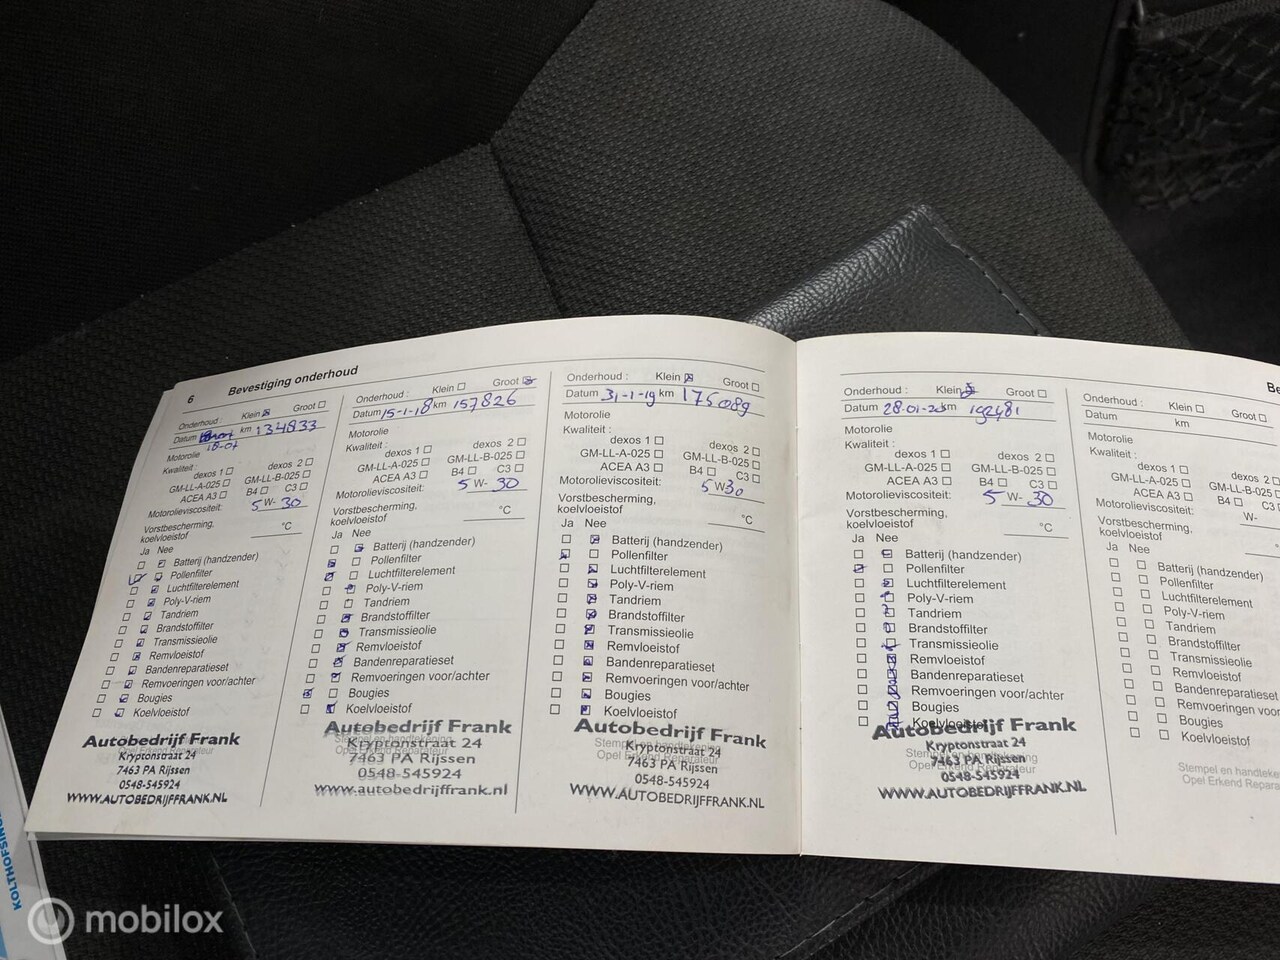 6 Bevestiging onderhoud
Onderhoud : Klein Groot
Datum km 134833
Motorolie
Kwaliteit :
dexos 1 dexos 2
GM-LL-A-025 GM-LL-B-025
ACEA A3 B4 C3
Motorolieviscositeit: 5 W- 30
Vorstbescherming,
koelvloeistof °C
Ja Nee
Batterij (handzender)
Pollenfilter
Luchtfilterelement
Poly-V-riem
Tandriem
Brandstoffilter
Transmissieolie
Remvloeistof
Bandenreparatieset
Remvoeringen voor/achter
Bougies
Koelvloeistof
Autobedrijf Frank
Kryptonstraat 24
7463 PA Rijssen
0548-545924
WWW.AUTOBEDRIJFFRANK.NL
Onderhoud : Klein Groot
Datum 15-1-18 km 157826
Motorolie
Kwaliteit :
dexos 1 dexos 2
GM-LL-A-025 GM-LL-B-025
ACEA A3 B4 C3
Motorolieviscositeit: 5 W- 30
Vorstbescherming,
koelvloeistof °C
Ja Nee
Batterij (handzender)
Pollenfilter
Luchtfilterelement
Poly-V-riem
Tandriem
Brandstoffilter
Transmissieolie
Remvloeistof
Bandenreparatieset
Remvoeringen voor/achter
Bougies
Koelvloeistof
Autobedrijf Frank
Kryptonstraat 24
7463 PA Rijssen
0548-545924
www.autobedrijffrank.nl
Onderhoud : Klein Groot
Datum 31-1-19 km 175089
Motorolie
Kwaliteit :
dexos 1 dexos 2
GM-LL-A-025 GM-LL-B-025
ACEA A3 B4 C3
Motorolieviscositeit: 5 W 30
Vorstbescherming,
koelvloeistof °C
Ja Nee
Batterij (handzender)
Pollenfilter
Luchtfilterelement
Poly-V-riem
Tandriem
Brandstoffilter
Transmissieolie
Remvloeistof
Bandenreparatieset
Remvoeringen voor/achter
Bougies
Koelvloeistof
Autobedrijf Frank
Stempel en handtekening
Kryptonstraat 24
Opel Erkend Reparateur
7463 PA Rijssen
0548-545924
WWW.AUTOBEDRIJFFRANK.NL
Onderhoud : Klein Groot
Datum 28-01-20 km 192481
Motorolie
Kwaliteit :
dexos 1 dexos 2
GM-LL-A-025 GM-LL-B-025
ACEA A3 B4 C3
Motorolieviscositeit: 5 W- 30
Vorstbescherming,
koelvloeistof °C
Ja Nee
Batterij (handzender)
Pollenfilter
Luchtfilterelement
Poly-V-riem
Tandriem
Brandstoffilter
Transmissieolie
Remvloeistof
Bandenreparatieset
Remvoeringen voor/achter
Bougies
Koelvloeistof
Autobedrijf Frank
Kryptonstraat 24
Stempel en handtekening
7463 PA Rijssen
Opel Erkend Reparateur
0548-545924
WWW.AUTOBEDRIJFFRANK.NL
Be
Onderhoud : Klein Groot
Datum km
Motorolie
Kwaliteit :
dexos 1 dexos 2
GM-LL-A-025 GM-LL-B-02
ACEA A3 B4 C3
Motorolieviscositeit: W-
Vorstbescherming,
koelvloeistof
Ja Nee
Batterij (handzender)
Pollenfilter
Luchtfilterelement
Poly-V-riem
Tandriem
Brandstoffilter
Transmissieolie
Remvloeistof
Bandenreparatieset
Remvoeringen voor
Bougies
Koelvloeistof
Stempel en handteke
Opel Erkend Repara
KOLTHOFSINGE
mobilox